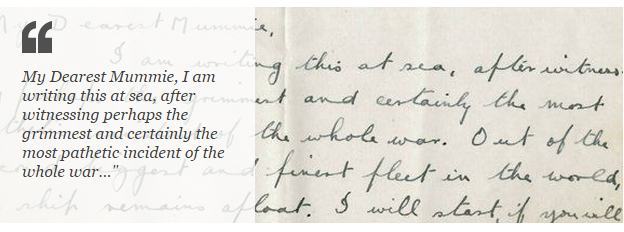 “
My Dearest Mummie, I am
writing this at sea, after
witnessing perhaps the
grimmest and certainly the
most pathetic incident of the
whole war..."
My Dearest Mummie,
I am writing this at sea, after witness-
grimmest and certainly the most
of the whole war. Out of the
biggest and finest fleet in the world,
ship remains afloat. I will start, if you will